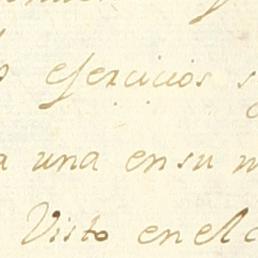 ejercicios
una en su
Visto en el